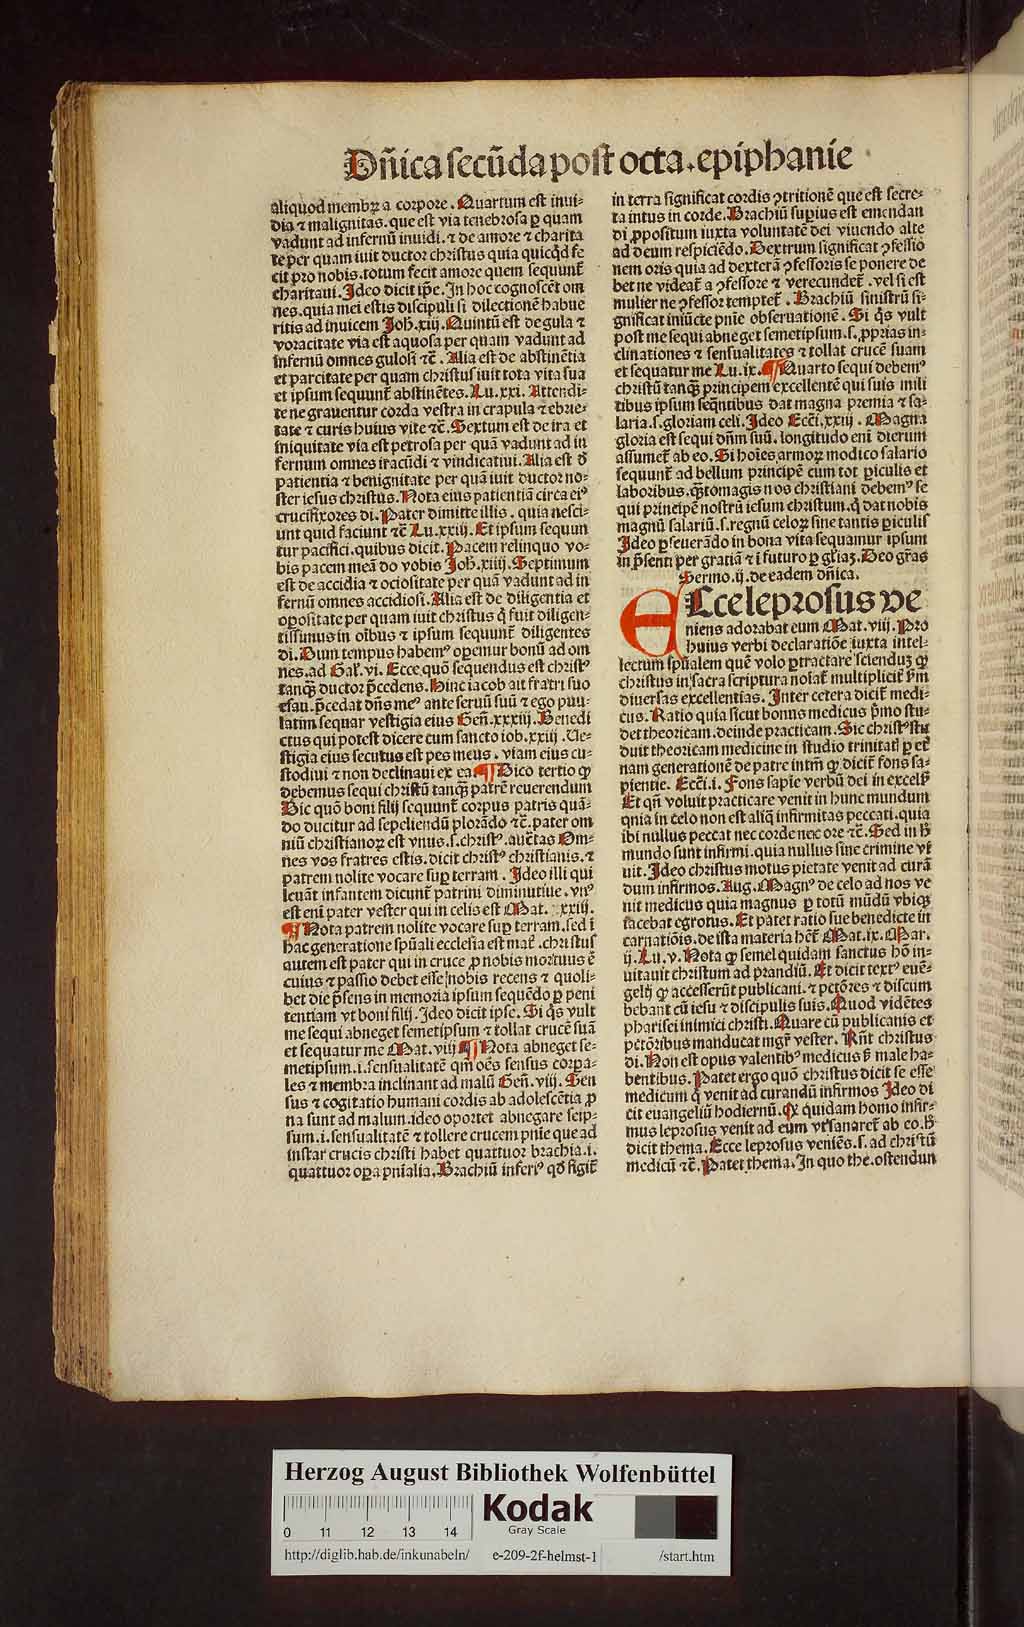 Dñica secũda post octa. epiphanie
aliquod membꝝ a corpore. Quartum est inui-
dia ⁊ malignitas. que est via tenebrosa ꝑ quam
vadunt ad infernũ inuidi. ⁊ de amore ⁊ charita
te per quam iuit ductor christus quia quicq̃d fe
cit pro nobis. totum fecit amore quem sequunt̃
charitaui. Ideo dicit ip̃e. In hoc cognoscẽt om
nes. quia mei estis discipuli si dilectionẽ habue
ritis ad inuicem Joh̃. xiij. Quintũ est de gula ⁊
voracitate via est aquosa per quam vadunt ad
infernũ omnes gulosi ⁊c̃. Alia est de abstinẽtia
et parcitate per quam christus iuit tota vita sua
et ipsum sequunt̃ abstinẽtes. Lu. xxi. Attendi-
te ne grauentur corda vestra in crapula ⁊ ebrie-
tate ⁊ curis huius vite ⁊c̃. Sextum est de ira et
iniquitate via est petrosa per quã vadunt ad in
fernum omnes iracũdi ⁊ vindicatiui. Alia est d̃
patientia ⁊ benignitate per quã iuit ductor no-
ster iesus christus. Nota eius patientiã circa eiꝰ
crucifixores di. Pater dimitte illis. quia nesci-
unt quid faciunt ⁊c̃ Lu. xxiij. Et ipsum sequun
tur pacifici. quibus dicit. Pacem relinquo vo-
bis pacem meã do vobis Joh̃. xiiij. Septimum
est de accidia ⁊ ociositate per quã vadunt ad in
fernũ omnes accidiosi. Alia est de diligentia et
oꝑositate per quam iuit christus q̃ fuit diligen-
tissimus in oĩbus ⁊ ipsum sequunt̃ diligentes
di. Dum tempus habemꝰ oꝑemur bonũ ad om
nes. ad Gal̃. vi. Ecce quõ sequendus est christꝰ
tanq̃ꝫ ductor p̃cedens. Hinc iacob ait fratri suo
esau. p̃cedat dñs meꝰ ante seruũ suũ ⁊ ego pau-
latim sequar vestigia eius Geñ. xxxiij. Benedi
ctus qui potest dicere cum sancto iob. xxiij. Ue-
stigia eius secutus est pes meus. viam eius cu-
stodiui ⁊ non declinaui ex ea ¶ Dico tertio ꝙ
debemus sequi christũ tanq̃ꝫ patrẽ reuerendum
Sic quõ boni filij sequunt̃ corpus patris quã-
do ducitur ad sepeliendũ plorãdo ⁊c̃. pater om
niũ christianoꝝ est vnus. s. christꝰ. auc̃tas Om-
nes vos fratres estis. dicit christꝰ christianis. ⁊
patrem nolite vocare suꝑ terram. Ideo illi qui
leuãt infantem dicunt̃ patrini diminutiue. vnꝰ
est eni pater vester qui in celis est Mat. xxiij.
¶ Nota patrem nolite vocare suꝑ terram. sed ĩ
hac generatione spũali ecclesia est mat̃. christus
autem est pater qui in cruce ꝓ nobis mortuus ẽ
cuius ⁊ passio debet esse nobis recens ⁊ quoli-
bet die p̃sens in memoria ipsum sequẽdo ꝑ peni
tentiam vt boni filij. Ideo dicit ipse. Si q̃s vult
me sequi abneget semetipsum ⁊ tollat crucẽ suã
et sequatur me Mat. viij ¶ Nota abneget se-
metipsum. i. sensualitatẽ qm̃ oẽs sensus corpa-
les ⁊ membra inclinant ad malũ Geñ. viij. Sen
sus ⁊ cogitatio humani cordis ab adolescẽtia ꝓ
na sunt ad malum. ideo oportet abnegare seip-
sum. i. sensualitatẽ ⁊ tollere crucem pnĩe que ad
instar crucis christi habet quattuor brachia. i.
quattuor oꝑa pnĩalia. Brachiũ inferiꝰ qd̃ figit̃
in terra significat cordis ↄtritionẽ que est secre-
ta intus in corde. Brachiũ suꝑius est emendan
di ꝓpositum iuxta voluntatẽ dei viuendo alte
ad deum respiciẽdo. Dextrum significat ↄfessio
nem oris quia ad dexterã ↄfessoris se ponere de
bet ne videat̃ a ↄfessore ⁊ verecundet̃. vel si est
mulier ne ↄfessor temptet̃. Brachiũ sinistrũ si-
gnificat iniũcte pnĩe obseruationẽ. Si q̃s vult
post me sequi abneget semetipsum. s. ꝓprias in-
clinationes ⁊ sensualitates ⁊ tollat crucẽ suam
et sequatur me Lu. ix. ¶ Quarto sequi debemꝰ
christũ tanq̃ꝫ principem excellentẽ qui suis mili
tibus ipsum seq̃ntibus dat magna premia ⁊ sa-
laria. s. gloriam celi. Ideo Ecci. xxiij. Magna
gloria est sequi dñm suũ. longitudo eni dierum
assumet̃ ab eo. Si hoĩes armoꝝ modico salario
sequunt̃ ad bellum principẽ cum tot ꝑiculis et
laboribus. q̃ꝫtomagis nos christiani debemꝰ se
qui principẽ nostrũ iesum christum. q̃ dat nobis
magnũ salariũ. s. regnũ celoꝝ sine tantis ꝑiculis
Ideo ꝑseuerãdo in bona vita sequamur ipsum
in p̃senti per gratiã ⁊ ĩ futuro ꝑ gl̃iaꝫ. Deo gr̃as
Sermo. ij. de eadem dñica.
ECce leprosus ve
niens adorabat eum Mat. viij. Pro
huius verbi declaratiõe iuxta intel-
lectum spũalem quẽ volo ꝑtractare sciendũꝫ ꝙ
christus in sacra scriptura noĩat̃ multiplicit̃ ẜm
diuersas excellentias. Inter cetera dicit̃ medi-
cus. Ratio quia sicut bonus medicus p̃mo stu-
det theoricam. deinde practicam. Sic christꝰ stu
duit theoricam medicine in studio trinitat̃ ꝑ et̃
nam generationẽ de patre intm̃ ꝙ dicit̃ fons sa-
pientie. Ecci. i. Fons sapie verbũ dei in excels̃
Et qñ voluit practicare venit in hunc mundum
qnia in celo non est aliq̃ infirmitas peccati. quia
ibi nullus peccat nec corde nec ore ⁊c̃. Sed in h̃
mundo sunt infirmi. quia nullus sine crimine vi
uit. Ideo christus motus pietate venit ad curã
dum infirmos. Aug. Magnꝰ de celo ad nos ve
nit medicus quia magnus ꝑ totũ mũdũ vbiqꝫ
iacebat egrotus. Et patet ratio sue benedicte in
carnatiõis. de ista materia het̃ Mat. ix. Mar.
ij. Lu. v. Nota ꝙ semel quidam sanctus hõ in-
uitauit christum ad prandiũ. Et dicit textꝰ euã-
gelij ꝙ accesserũt publicani. ⁊ pctõres ⁊ discum
bebant cũ iesu ⁊ discipulis suis. Quod vidẽtes
pharisei inimici christi. Quare cũ publicanis et
pctõribus manducat mgr̃ vester. Rñt christus
di. Non est opus valentibꝰ medicus ẜ male ha-
bentibus. Patet ergo quõ christus dicit se esse
medicum q̃ venit ad curandũ infirmos Ideo di
cit euangeliũ hodiernũ. Qꝫ quidam homo infir-
mus leprosus venit ad eum vt sanaret̃ ab eo. h̃
dicit thema. Ecce leprosus veniẽs. s. ad christũ
medicũ ⁊c̃. Patet thema. In quo the. ostendun
Herzog August Bibliothek Wolfenbüttel
Kodak
Gray Scale
0 11 12 13 14
http://diglib.hab.de/inkunabeln/ e-209-2f-helmst-1 /start.htm